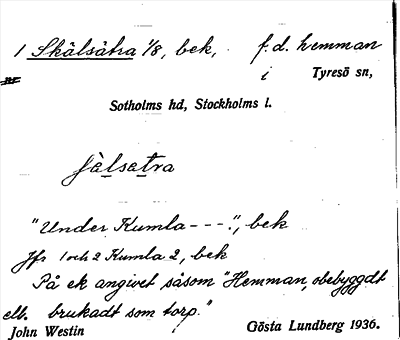 1 Skälsätra 1/8, bek, f.d. hemman
i Tyresö sn,
Sotholms hd, Stockholms l.
Jälsatra
"Under Kumla ---.", bek
Jfr 1 och 2 Kumla 2, bek
På ek angivet såsom "Hemman, obebyggdt
ell. brukadt som torp."
John Westin Gösta Lundberg 1936.